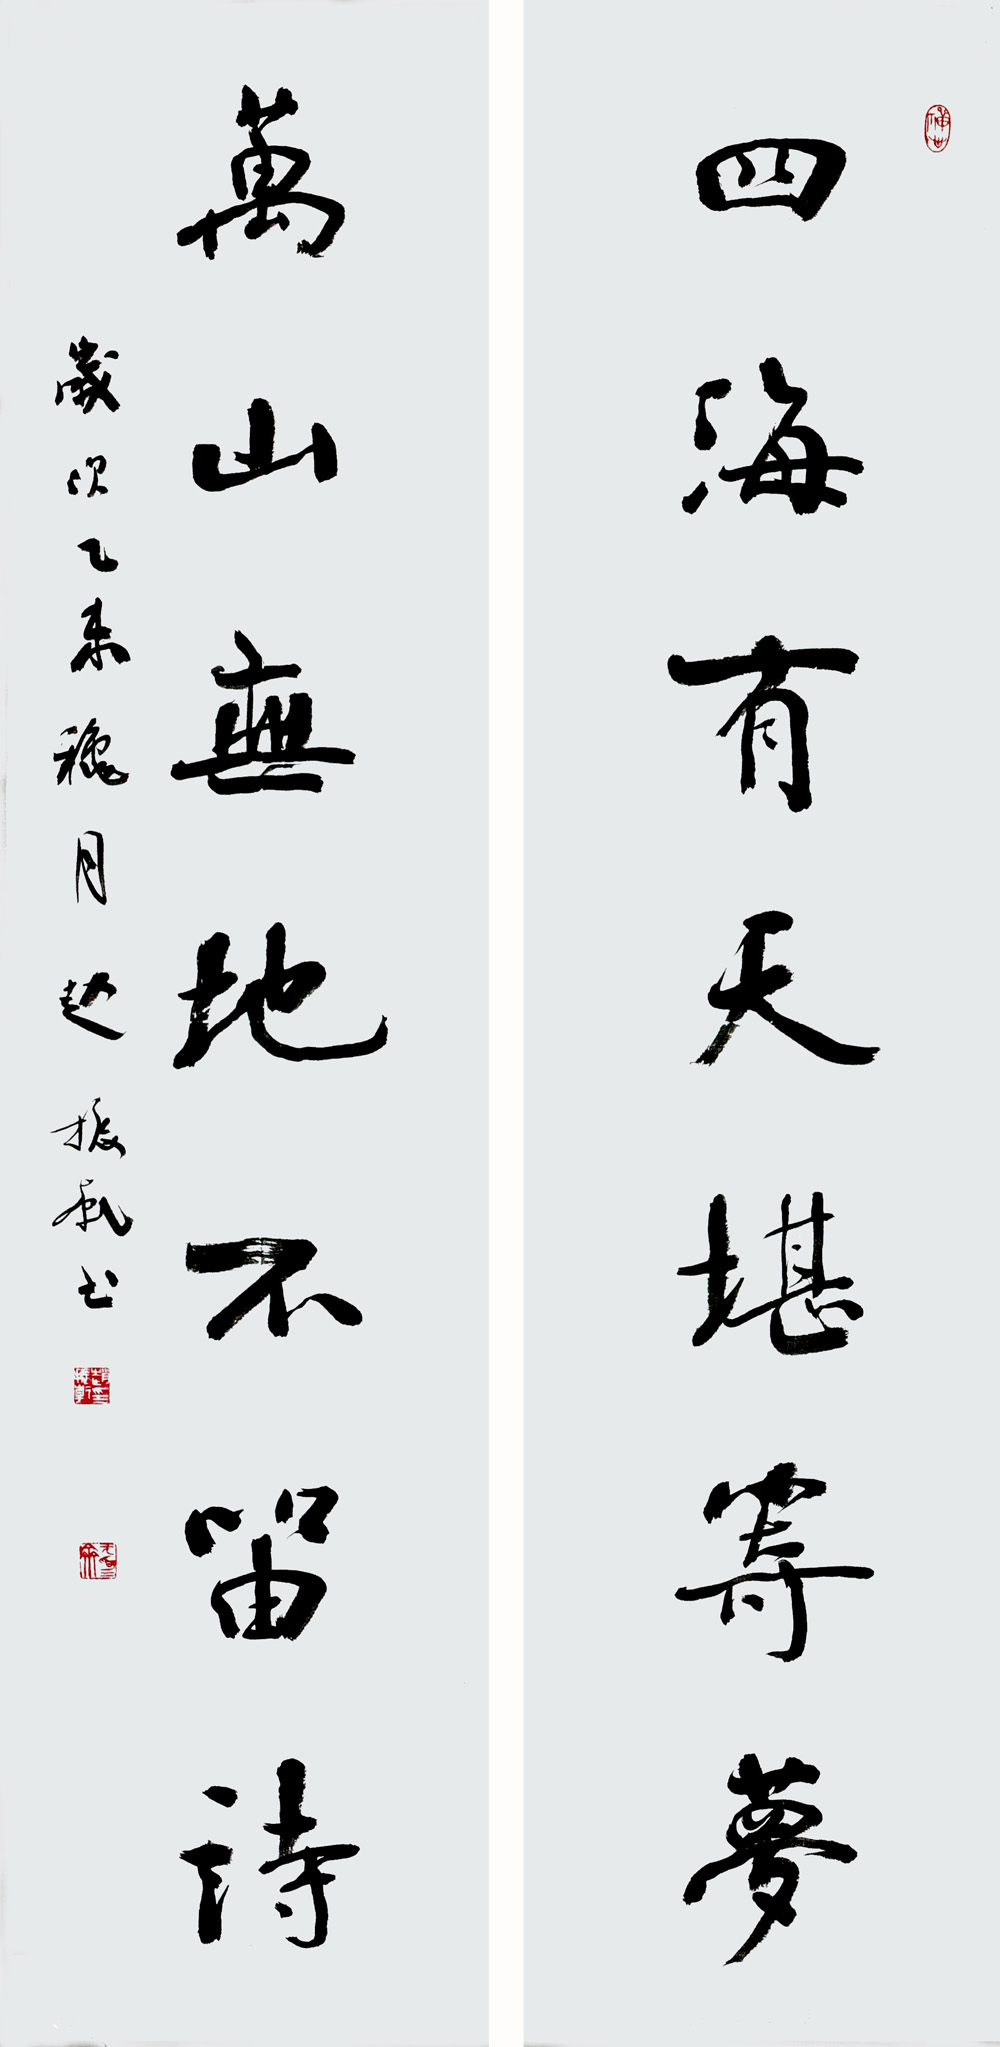 四海有天堪寄夢
萬山無地不留詩
歲次乙未穐月趙振乾书